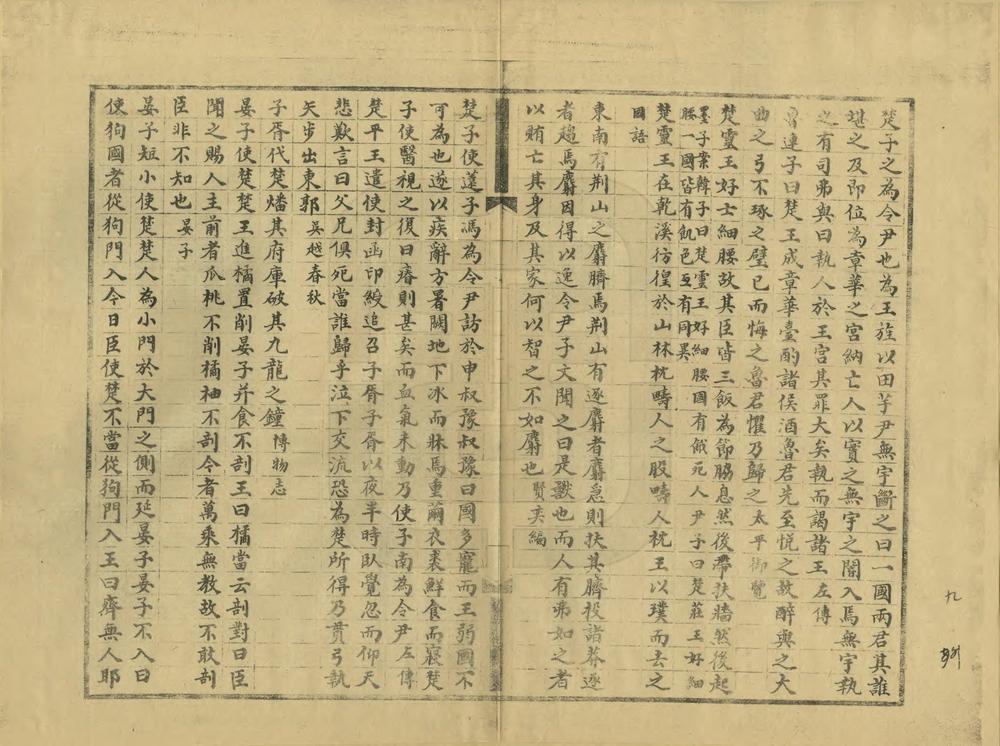 楚子之為令尹也為王旌以田芋尹無宇斷之曰一國兩君其誰
堪之及即位為章華之宮納亡人以實之無宇之閽入焉無宇執
之有司弗與曰執人於王宮其罪大矣執而謁諸王左傳
魯連子曰楚王成章華臺酌諸侯酒魯君先至悅之故醉與之大
曲之弓不琢之璧已而悔之魯君懼乃歸之太平御覽
楚靈王好士細腰故其臣皆三飯為節脇息然後帶扶牆然後起
墨子案韓子曰楚靈王好細腰國有餓死人尹子曰楚莊王好細
腰一國皆有飢色互有同異
楚靈王在乾溪彷徨於山林枕疇人之股疇人枕王以璞而去之
國語
東南有荆山之麝臍焉荆山有逐麝者麝急則扶其臍投諸莽逐
者趨焉麝因得以逸令尹子文聞之曰是獸也而人有弗如之者
以賄亡其身及其家何以智之不如麝也賢奕編
楚子使薳子馮為令尹訪於申叔豫叔豫曰國多寵而王弱國不
可為也遂以疾辭方暑闕地下冰而牀焉重繭衣裘鮮食而寢楚
子使醫視之復曰瘠則甚矣而血氣未動乃使子南為令尹左傳
楚平王遣使封函印綬追召子胥子胥以夜半時臥覺忽而仰天
悲歎言曰父兄俱死當誰歸乎泣下交流恐為楚所得乃貫弓執
矢步出東郭吳越春秋
子胥代楚燔其府庫破其九龍之鐘博物志
晏子使楚楚王進橘置削晏子并食不剖王曰橘當云剖對曰臣
聞之賜人主前者瓜桃不削橘柚不剖令者萬乘無教故不敢剖
臣非不知也晏子
晏子短小使楚楚人為小門於大門之側而延晏子晏子不入曰
使狗國者從狗門入今日臣使楚不當從狗門入王曰齊無人耶
九